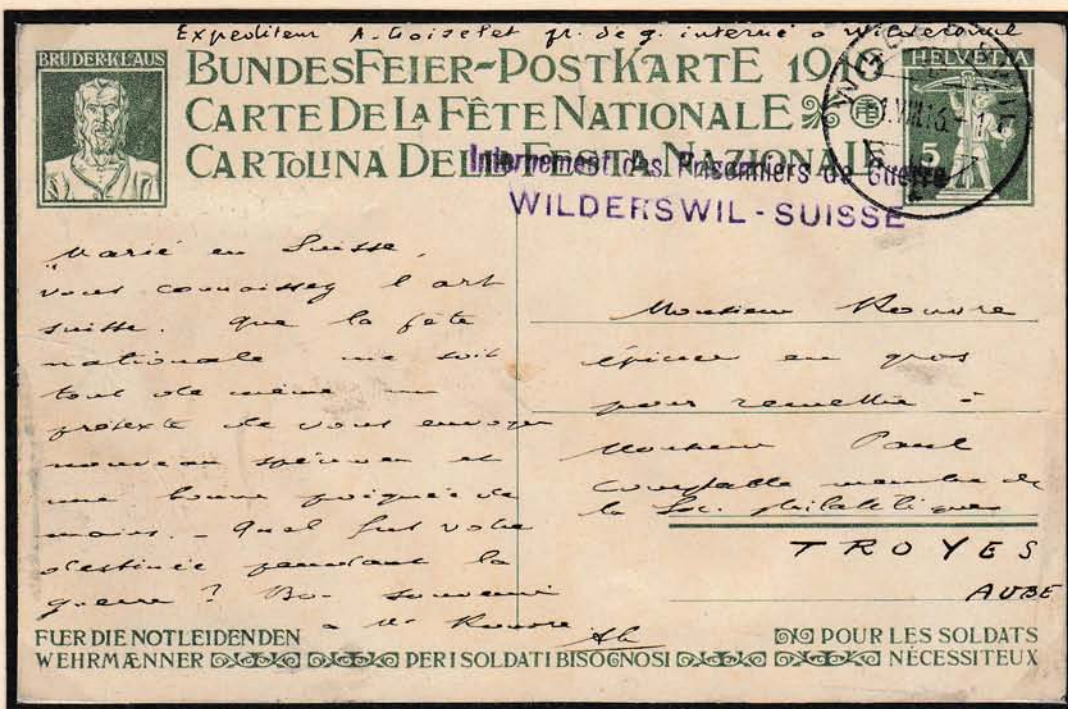 Expediteur A. Goiselet pr. de g. interné a Wilderswil
BRUDERKLAUS
BUNDESFEIER-POSTKARTE 1916
CARTE DE LA FÊTE NATIONALE
CARTOLINA DELLA FESTA NAZIONALE
HELVETIA
5
Internement des Prisonniers de Guerre
WILDERSWIL - SUISSE
Marié en Suisse,
vous connaissez l'art
suisse. Que la fête
nationale me soit
tout de même un
prétexte de vous envoyer
nouveau spécimen et
une bonne poignée de
mains. - Quel fut votre
destinée pendant la
guerre ? Bon souvenir
a Mr Rouvre
Monsieur Rouvre
épicier en gros
pour remettre à
Monsieur Paul
comptable membre de
la Soc. philatélique
TROYES
AUBE
FUER DIE NOTLEIDENDEN
WEHRMÆNNER PER I SOLDATI BISOGNOSI
POUR LES SOLDATS
NÉCESSITEUX